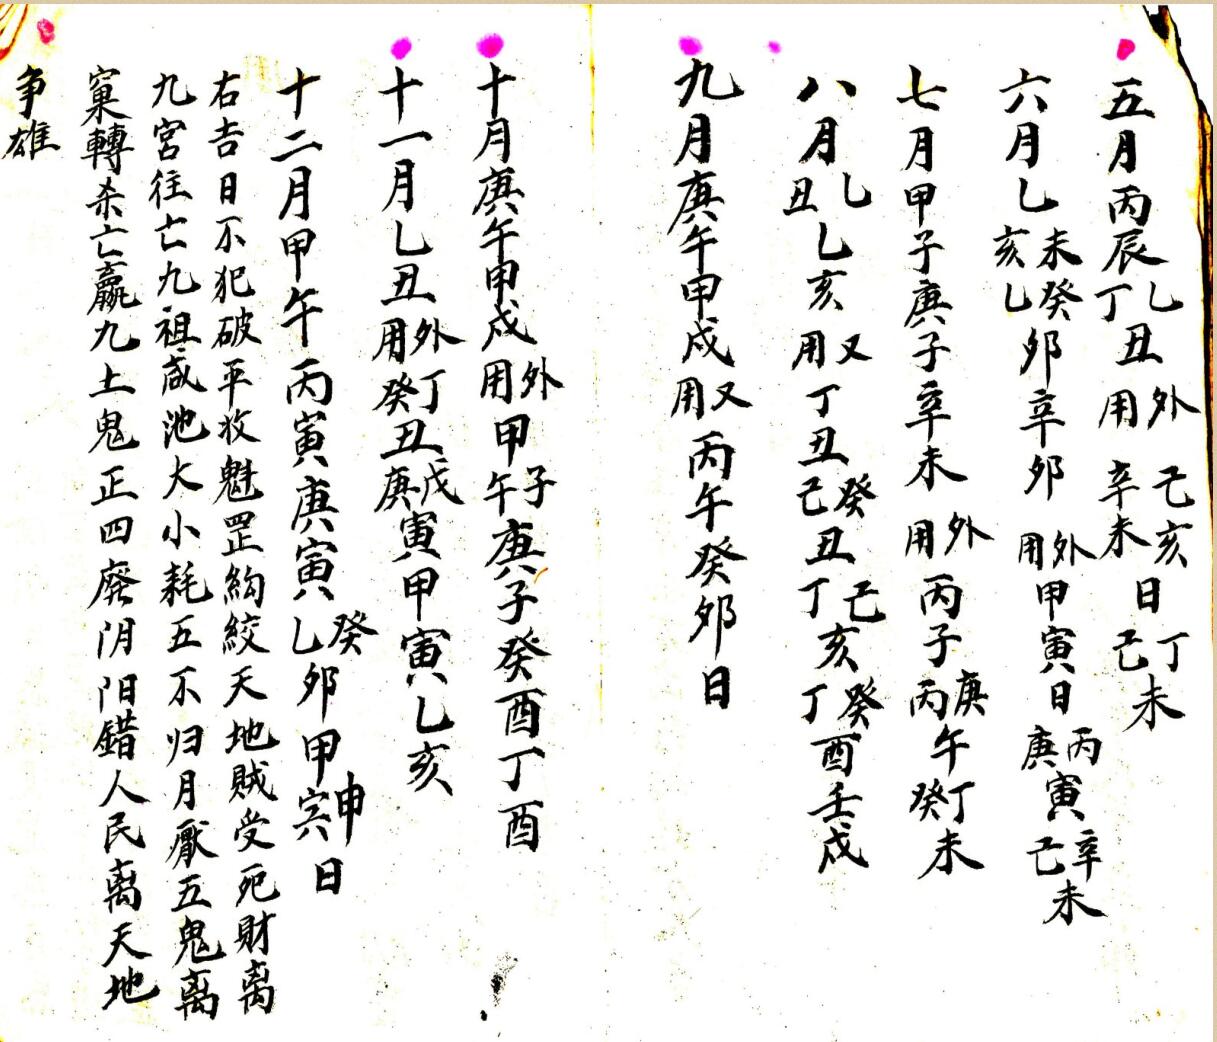 五月丙辰乙丁丑外用己亥辛未日丁己未
六月乙未亥癸乙卯辛卯外用甲寅日丙庚寅辛己未
七月甲子庚子辛未外用丙子庚丙午丁癸未
八月乙丑乙亥又用丁丑癸己丑己丁亥癸丁酉壬戌
九月庚午甲戌又用丙午癸卯日
十月庚午甲戌外用甲子午庚子癸酉丁酉
十一月乙丑外用丁癸丑戊庚寅甲寅乙亥
十二月甲午丙寅庚寅癸乙卯甲申寅日
右吉日不犯破平收魁罡絇絞天地賊受死財离
九宮往亡九祖咸池大小耗五不归月厭五鬼离
窠轉杀亡嬴九土鬼正四廢阴阳錯人民离天地
争雄